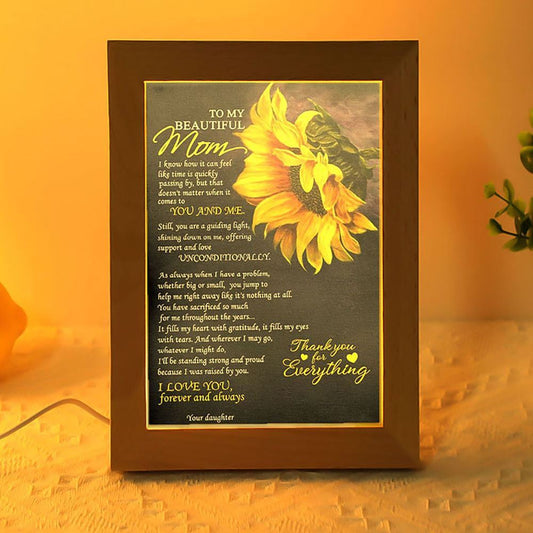 TO MY
BEAUTIFUL
Mom
I know how it can feel
like time is quickly
passing by, but that
doesn't matter when it
comes to
YOU AND ME.
Still, you are a guiding light,
shining down on me, offering
support and love
UNCONDITIONALLY.
As always when I have a problem,
whether big or small, you jump to
help me right away like it's nothing at all.
You have sacrificed so much
for me throughout the years...
It fills my heart with gratitude, it fills my eyes
with tears. And wherever I may go,
whatever I might do,
I'll be standing strong and proud
because I was raised by you.
I LOVE YOU,
forever and always
Your daughter
Thank you
for
Everything